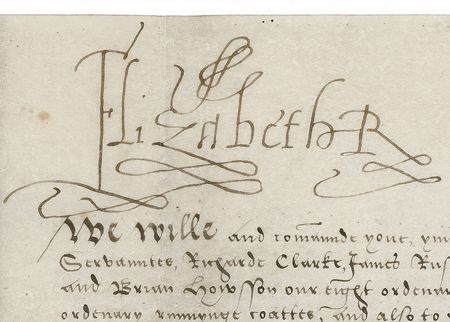 Elizabeth R
We wille and comaunde youe,
Servauntes, Richarde Clarke, James Rus
and Brian Howsson our eight ordenar
ordenary runnynge coattes, and also to